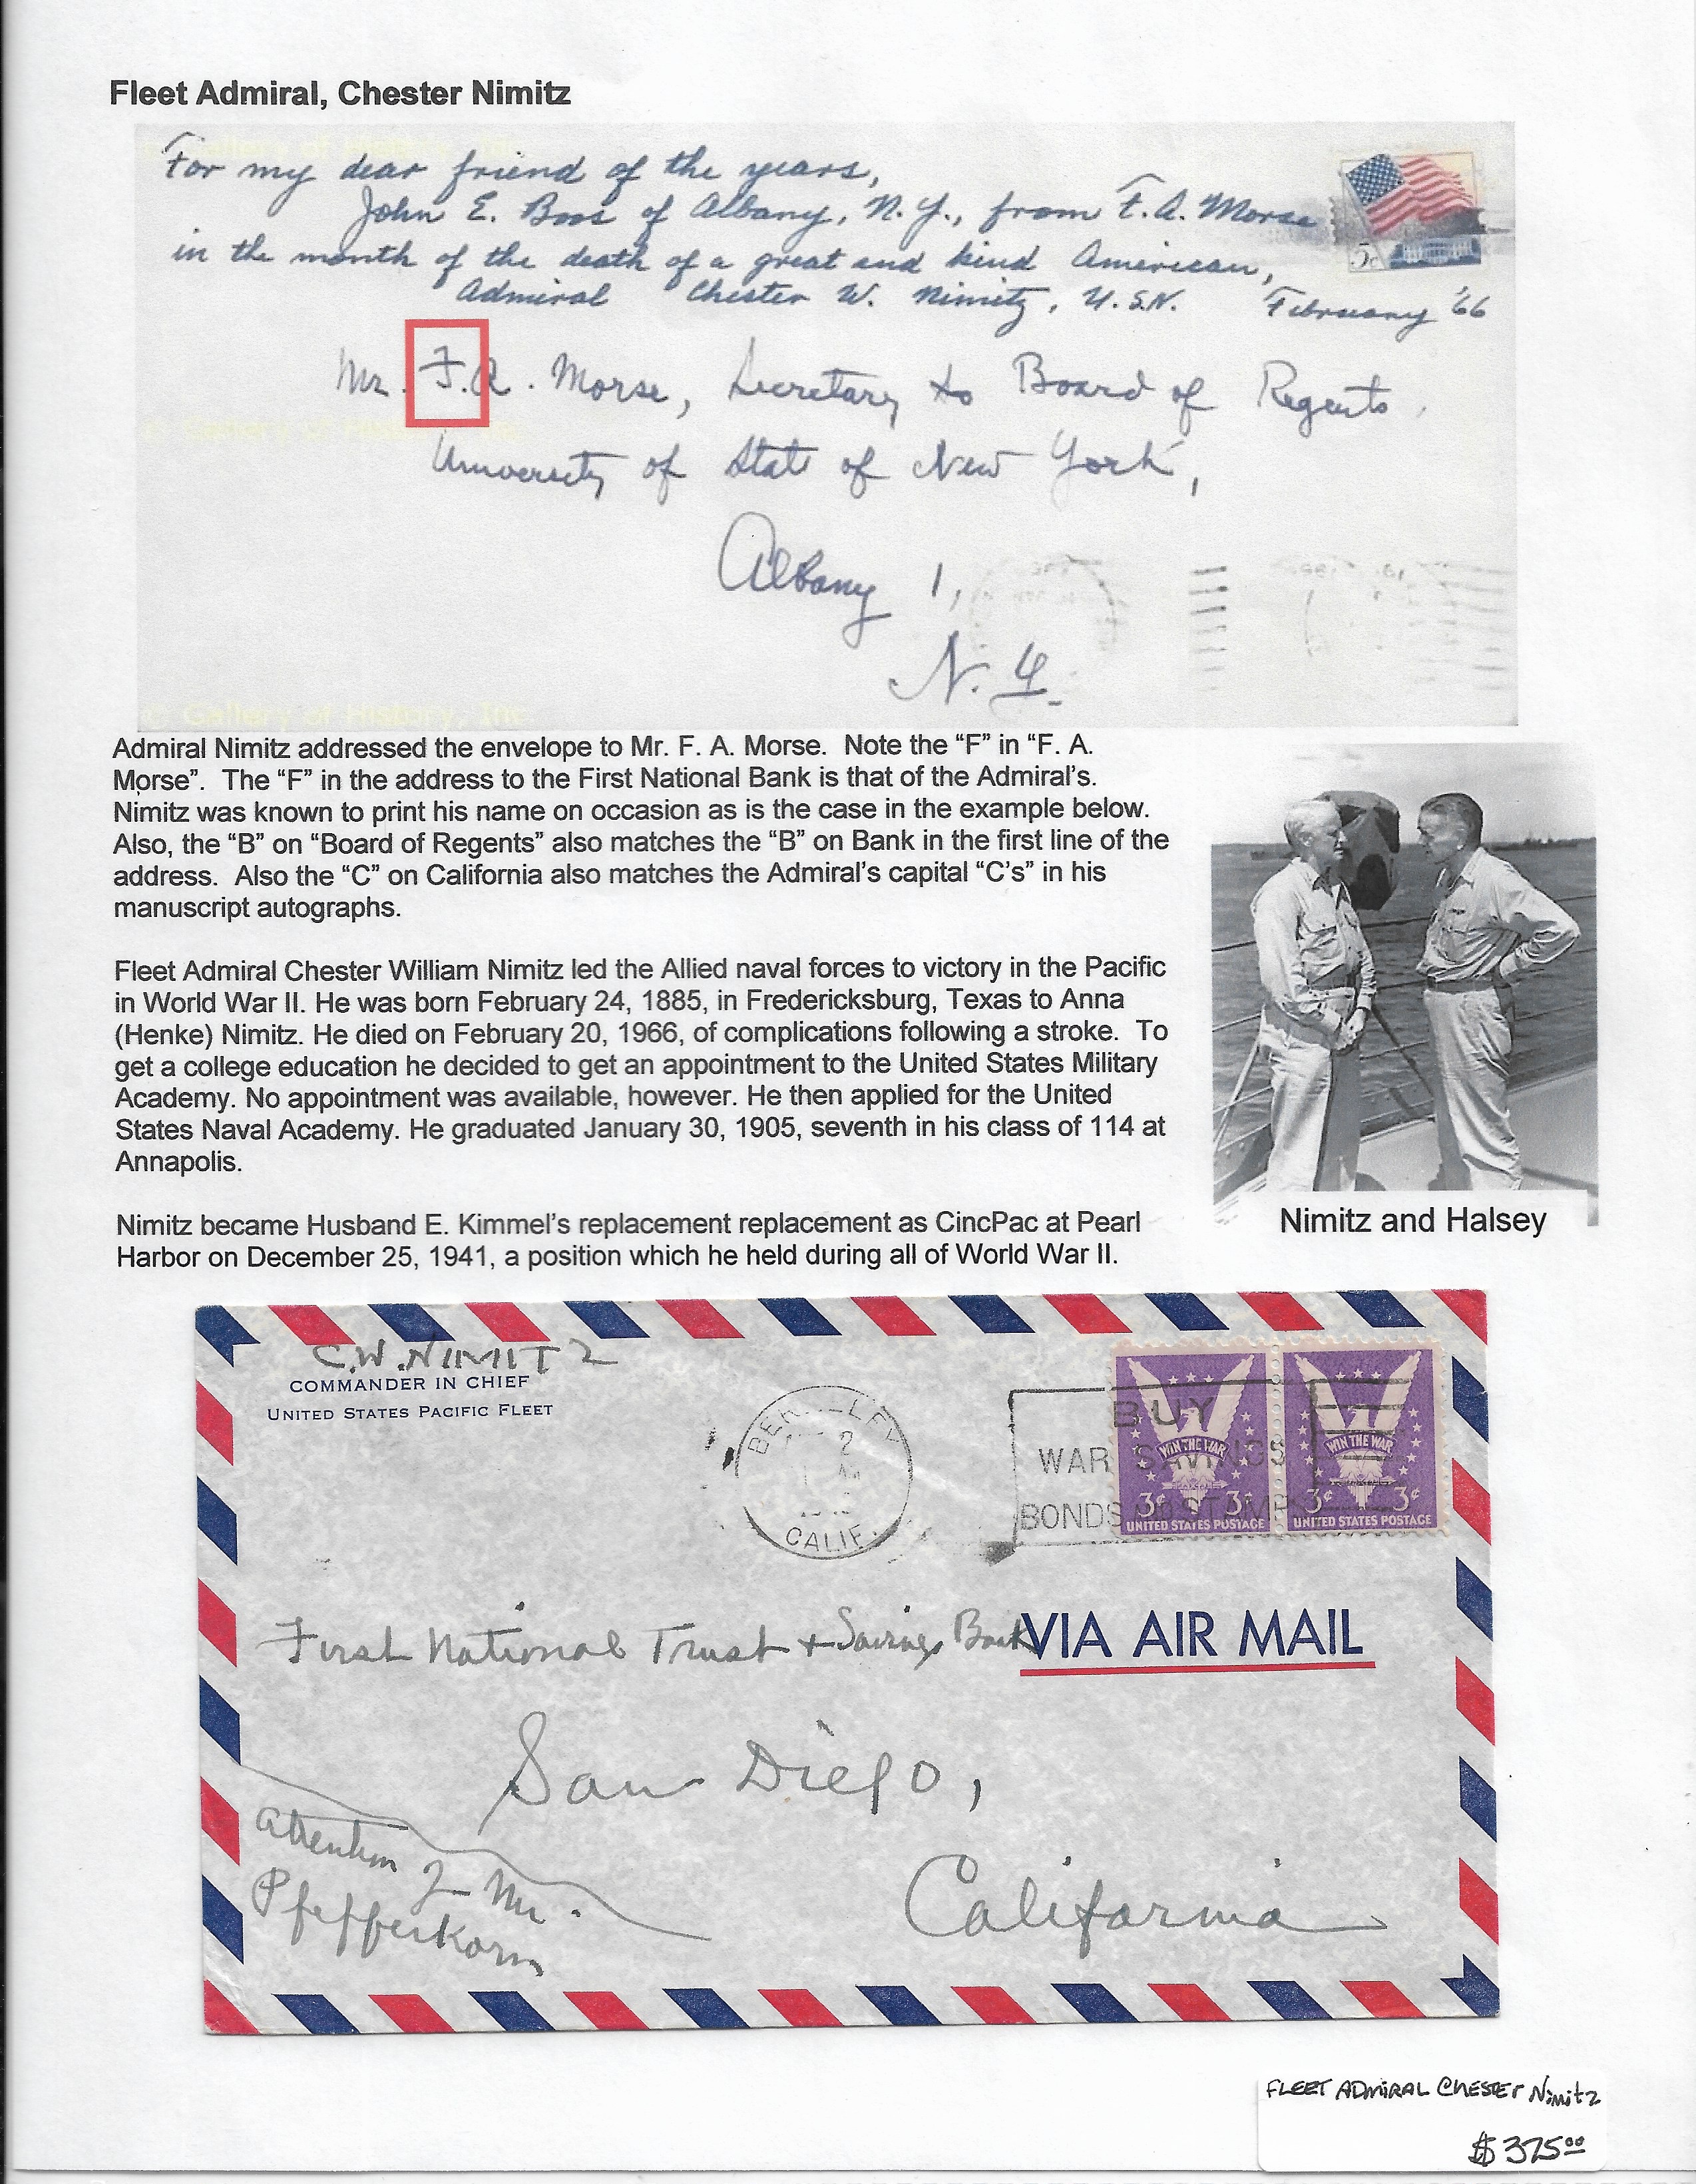 Fleet Admiral, Chester Nimitz
For my dear friend of the years,
John E. Boos of Albany, N.Y., from F.A. Morse
in the month of the death of a great and kind American,
Admiral Chester W. Nimitz, U.S.N. February '66
5c
Mr. F.A. Morse, Secretary to Board of Regents,
University of State of New York,
Albany 1,
N.Y.
© Gallery of History, Inc.
Admiral Nimitz addressed the envelope to Mr. F. A. Morse. Note the “F” in “F. A.
Morse”. The “F” in the address to the First National Bank is that of the Admiral’s.
Nimitz was known to print his name on occasion as is the case in the example below.
Also, the “B” on “Board of Regents” also matches the “B” on Bank in the first line of the
address. Also the “C” on California also matches the Admiral’s capital “C’s” in his
manuscript autographs.
Fleet Admiral Chester William Nimitz led the Allied naval forces to victory in the Pacific
in World War II. He was born February 24, 1885, in Fredericksburg, Texas to Anna
(Henke) Nimitz. He died on February 20, 1966, of complications following a stroke. To
get a college education he decided to get an appointment to the United States Military
Academy. No appointment was available, however. He then applied for the United
States Naval Academy. He graduated January 30, 1905, seventh in his class of 114 at
Annapolis.
Nimitz became Husband E. Kimmel’s replacement replacement as CincPac at Pearl
Harbor on December 25, 1941, a position which he held during all of World War II.
Nimitz and Halsey
C.W. NIMITZ
COMMANDER IN CHIEF
UNITED STATES PACIFIC FLEET
CALIF.
BUY
WAR SAVINGS
BONDS AND STAMPS
WIN THE WAR
3¢ 3¢
UNITED STATES POSTAGE
WIN THE WAR
3¢ 3¢
UNITED STATES POSTAGE
First National Trust + Savings Bank
VIA AIR MAIL
San Diego,
California
Attention of Mr.
Pfefferkorn
FLEET ADMIRAL CHESTER Nimitz
$375.00